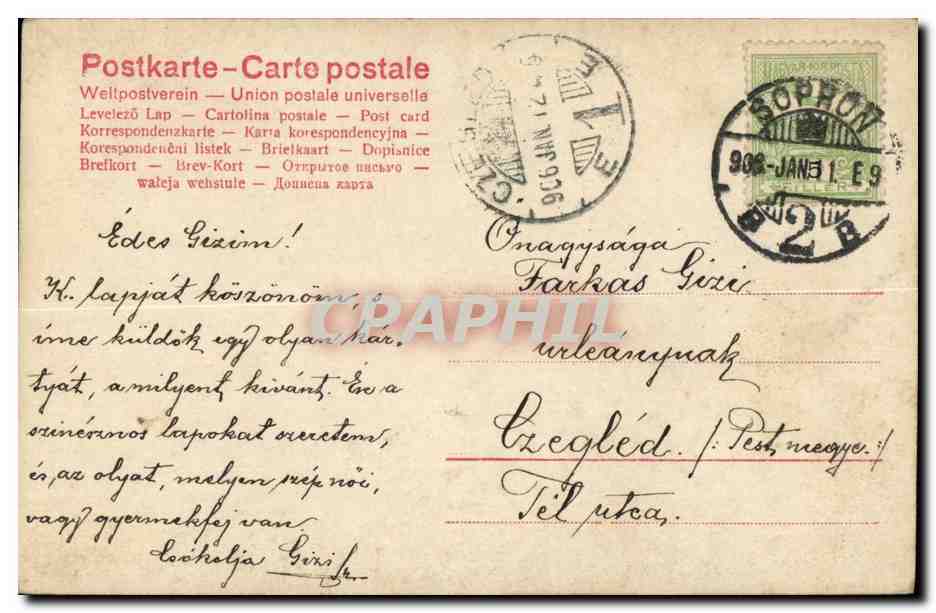 Postkarte – Carte postale
Weltpostverein — Union postale universelle
Levelező Lap — Cartolina postale — Post card
Korrespondenzkarte — Karta korespondencyjna —
Korespondenční listek — Briefkaart — Dopisnice
Brefkort — Brev-Kort — Открытое письмо —
waleja wehstule — Дописна карта
SOPRON
906-JAN 11. E 9
B 2 B
FILLER
906 JAN
Édes Gizim!
K. lapját köszönöm, s
íme küldök egy olyan kár-
tyát, a milyent kivánt. Én a
szinésznős lapokat szeretem,
és, az olyat, melyen szép női,
vagy gyermekfej van.
Csókolja Gizi
Őnagysága
Farkas Gizi
urleánynak
Czegléd. /: Pest megye :/
Tél utca.
CPAPHIL